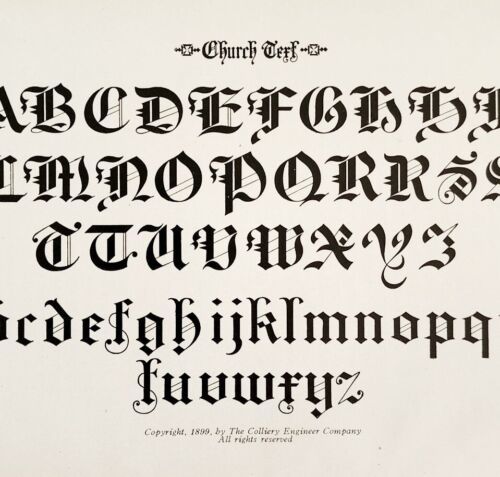 Church Text
ABCDEFGHH
LMNOPQRRS
TTUVWXYZ
cdefghijklmnopq
ſuvwxyz
Copyright, 1899, by The Colliery Engineer Company
All rights reserved